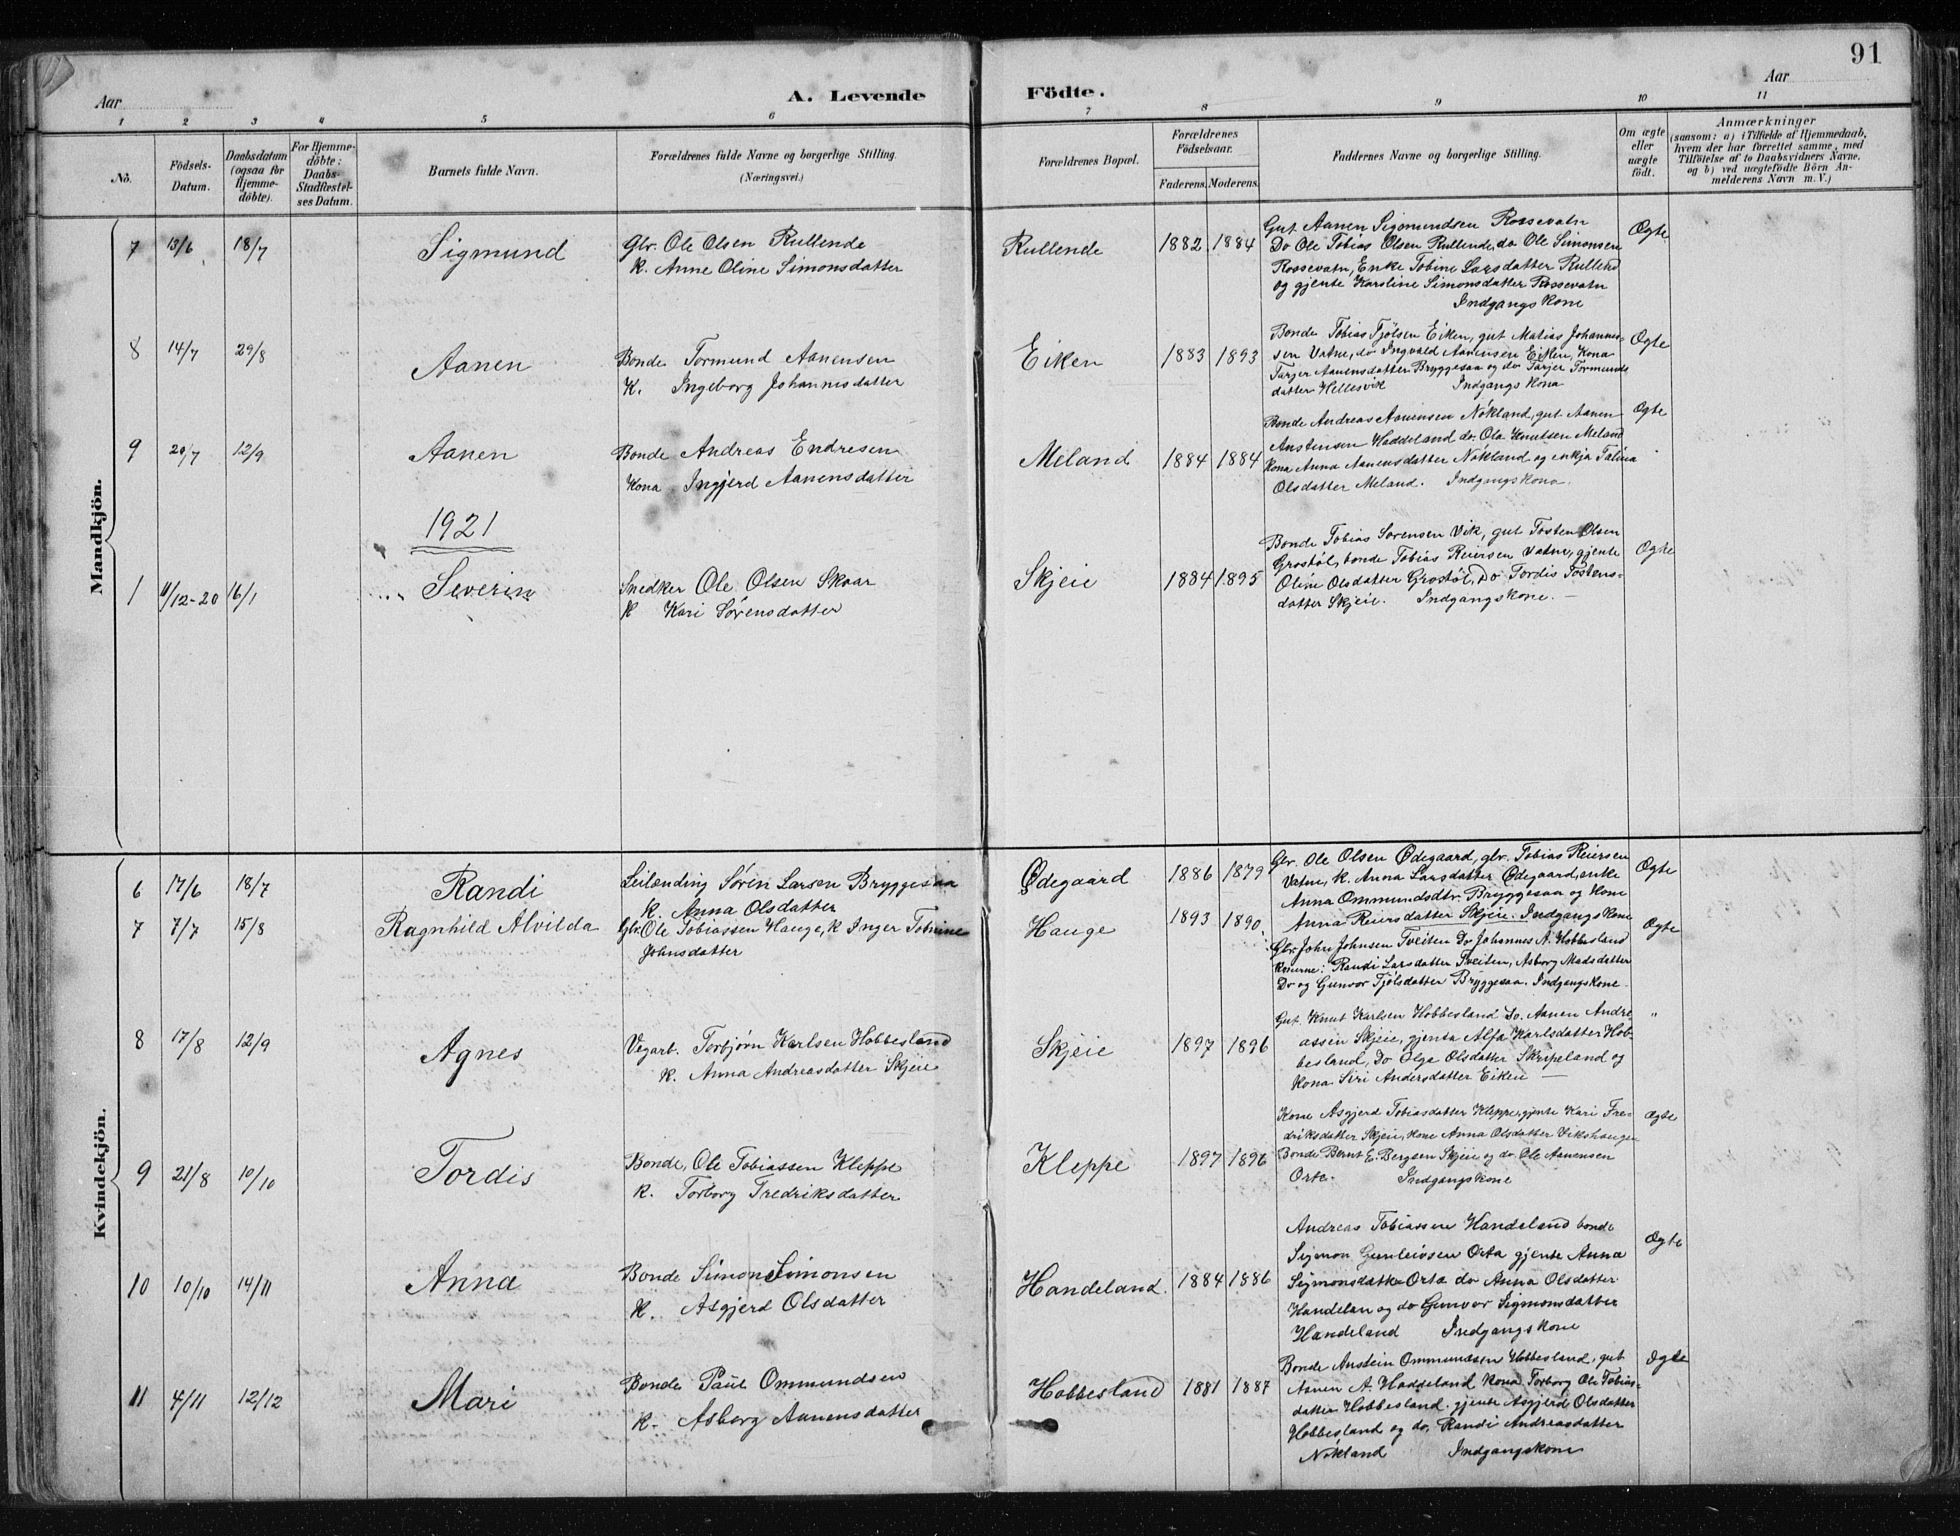 91
Aar
A. Levende
Födte.
Aar
1 2 3 4 5 6 7 8 9 10 11
No.
Födsels-
Datum.
Daabsdatum
(ogsaa for
Hjemme-
döbte).
For Hjemme-
döbte:
Daabs-
Stadfæstel-
ses Datum.
Barnets fulde Navn.
Forældrenes fulde Navne og borgerlige Stilling.
(Næringsvei.)
Forældrenes Bopæl.
Forældrenes
Födselsaar.
Faderens. Moderens.
Faddernes Navne og borgerlige Stilling.
Om ægte
eller
uægte
født.
Anmærkninger
(saasom: a) i Tilfælde af Hjemmedaab,
hvem der har forrettet samme, med
Tilföielse af to Daabsvidners Navne,
og b) ved uægtefödte Börn An-
melderens Navn m. V.)
Mandkjön.
7 13/6 18/7 Sigmund
Gbr. Ole Olsen Rullende
K. Anne Oline Simonsdatter
Rullende 1882 1884
Gut Aanen Sigmundsen Rossevatn
Do Ole Tobias Olsen Rullende, do Ole Simonsen
Rossevatn, Enke Tobine Larsdatter Rullend
og gjente Karoline Simonsdatter Rossevatn
Indgangskone
Ægte
8 14/7 29/8 Aanen
Bonde Tormund Aanensen
K. Ingeborg Johannisdatter
Eiken 1883 1893
Bonde Tobias Tjølsen Eiken, gut Matias Johannes-
sen Vatne, do Ingvald Aanensen Eiken, Kona
Tarjer Aanensdatter Bryggesaa og do Tarjer Tormunds
datter Hellesvik Indgangskona
Ægte
9 20/7 12/9 Aanen
Bonde Andreas Endresen
Kona Ingjerd Aanensdatter
Meland 1884 1884
Bonde Andreas Aanensen Nøkland, gut Aanen
Anstensen Haddeland do. Ola Knutsen Meland
Kona Anna Aanensdatter Nøkland og enkja Talina
Olsdatter Meland. Indgangskona.
Ægte
1921
1 11/12-20 16/1 Severin
Snedker Ole Olsen Skaar
K Kari Sørensdatter
Skjeie 1884 1895
Bonde Tobias Sørensen Vik, gut Tosten Olsen
Grostøl, bonde Tobias Reiersen Vatne, gjente
Oline Olsdatter Grostøl, Do Tordis Tostens-
datter Skjeie. Indgangskone. —
Ægte
Kvindekjön.
6 17/6 18/7 Randi
Leilænding Søren Larsen Bryggesaa
K. Anna Olsdatter
Ødegaard 1886 1879
Gbr. Ole Olsen Ødegaard, gbr. Tobias Reiersen
Vatne, K. Anna Larsdatter Ødegaard, enke
Anna Ommundsdtr. Bryggesaa og Kone
Anna Reiersdatter Skjeie. Indgangskone
Ægte
7 7/7 15/8 Ragnhild Alvilda
Gbr. Ole Tobiassen Hauge, K Inger Tobine
Johnsdatter
Hauge 1893 1890.
Gbr. John Johnsen Tveiten Do Johannes A. Hobbesland
Konerne: Randi Larsdatter Tveiten, Asborg Madsdatter
Do og Gunvor Tjølsdatter Bryggesaa. Indgangskone.
Ægte
8 17/8 12/9 Agnes
Vegarb. Torbjørn Karlsen Hobbesland
K. Anna Andreasdatter Skjeie
Skjeie 1897 1896
Gut. Knut Karlsen Hobbesland Do. Aanen Andre
assen Skjeie, gjenta Alfa Karlsdatter Hob-
besland, Do Olga Olsdatter Skripeland og
Kona Siri Andersdatter Eiken —
"
9 21/8 10/10 Tordis
Bonde, Ole Tobiassen Kleppe
K. Torborg Fredriksdatter
Kleppe 1897 1896
Kone Asgjerd Tobiasdatter Kleppe, gjente Kari Fre-
driksdatter Skjeie, Kone Anna Olsdatter Vikshaugen
Bonde Bernt E. Bergsen Skjeie og do. Ole Aanensen
Orte. Indgangskone
Ægte
10 10/10 14/11 Anna
Bonde Simon Simonsen
K. Asgjerd Olsdatter
Handeland. 1884 1886
Andreas Tobiassen Handeland bonde
Sigmon Gunleivsen Orta gjente Anna
Sigmonsdatter Orta do Anna Olsdatter
Handelan og do Gunvor Sigmonsdatter
Handeland Indgangskone
Ægte
11 4/11 12/12 Mari
Bonde Paul Ommundsen
K. Asborg Aanensdatter
Hobbesland 1881 1887
Bonde Anstein Ommundsen Hobbesland, gut
Aanen A. Haddeland Kona Torborg Ole Tobias-
datter Hobbesland. gjente Asgjerd Olsdatter
Hobbesland og do, Randi Andreasdatter
Nøkland Indgangskone
Ægte